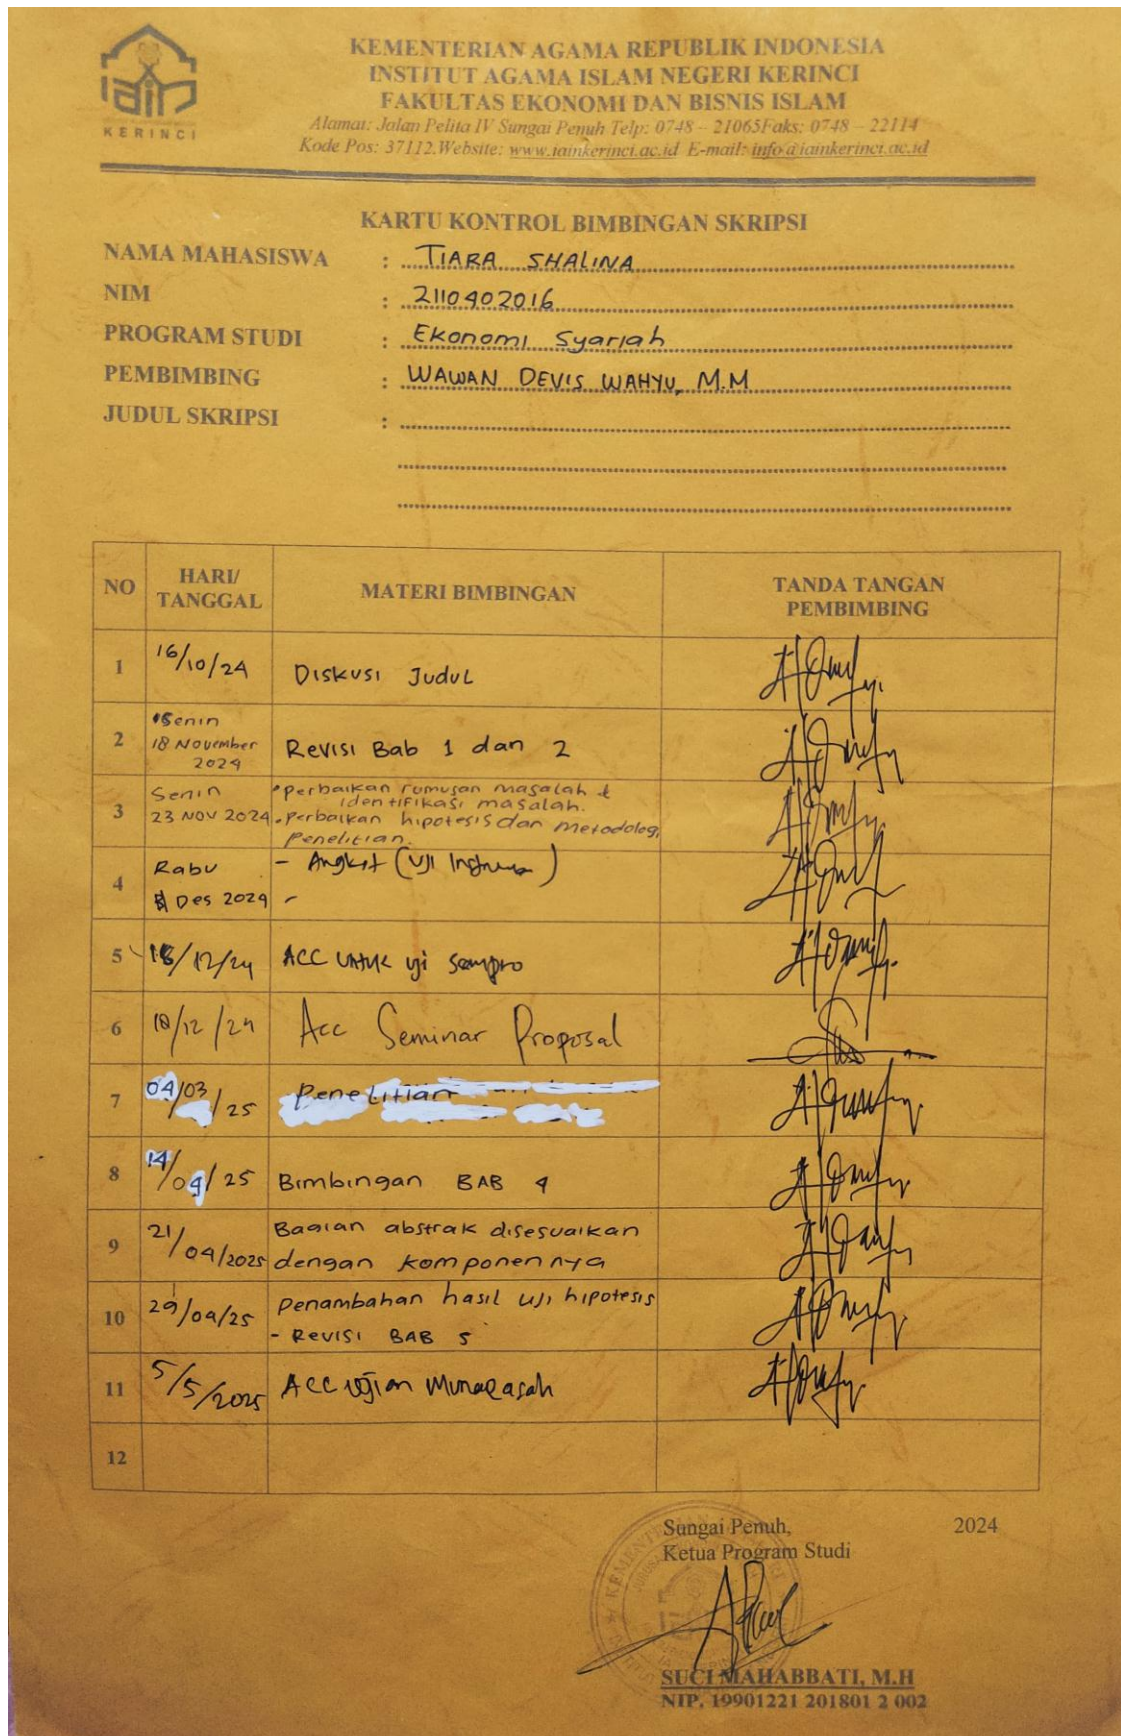 iain
KERINCI
KEMENTERIAN AGAMA REPUBLIK INDONESIA
INSTITUT AGAMA ISLAM NEGERI KERINCI
FAKULTAS EKONOMI DAN BISNIS ISLAM
Alamat: Jalan Pelita IV Sungai Penuh Telp: 0748 – 21065Faks: 0748 – 22114
Kode Pos: 37112.Website: www.iainkerinci.ac.id E-mail: info@iainkerinci.ac.id
KARTU KONTROL BIMBINGAN SKRIPSI
NAMA MAHASISWA : TIARA SHALINA
NIM : 2110402016
PROGRAM STUDI : Ekonomi Syariah
PEMBIMBING : WAWAN DEVIS WAHYU, M.M
JUDUL SKRIPSI :
NO HARI/ TANGGAL MATERI BIMBINGAN TANDA TANGAN PEMBIMBING
1 16/10/24 Diskusi Judul
2 Senin 18 November 2024 Revisi Bab 1 dan 2
3 Senin 23 NOV 2024 • perbaikan rumusan masalah & identifikasi masalah.
• perbaikan hipotesis dan metodologi penelitian.
4 Rabu Des 2024 - Angket (Uji Instrumen)
-
5 18/12/24 ACC untuk uji sempro
6 18/12/24 Acc Seminar Proposal
7 04/03/25 Penelitian
8 14/04/25 Bimbingan BAB 4
9 21/04/2025 Bagian abstrak disesuaikan
dengan komponennya
10 29/04/25 Penambahan hasil uji hipotesis
- Revisi BAB 5
11 5/5/2025 Acc Ujian Munaqasah
12
Sungai Penuh, 2024
Ketua Program Studi
SUCI MAHABBATI, M.H
NIP. 19901221 201801 2 002